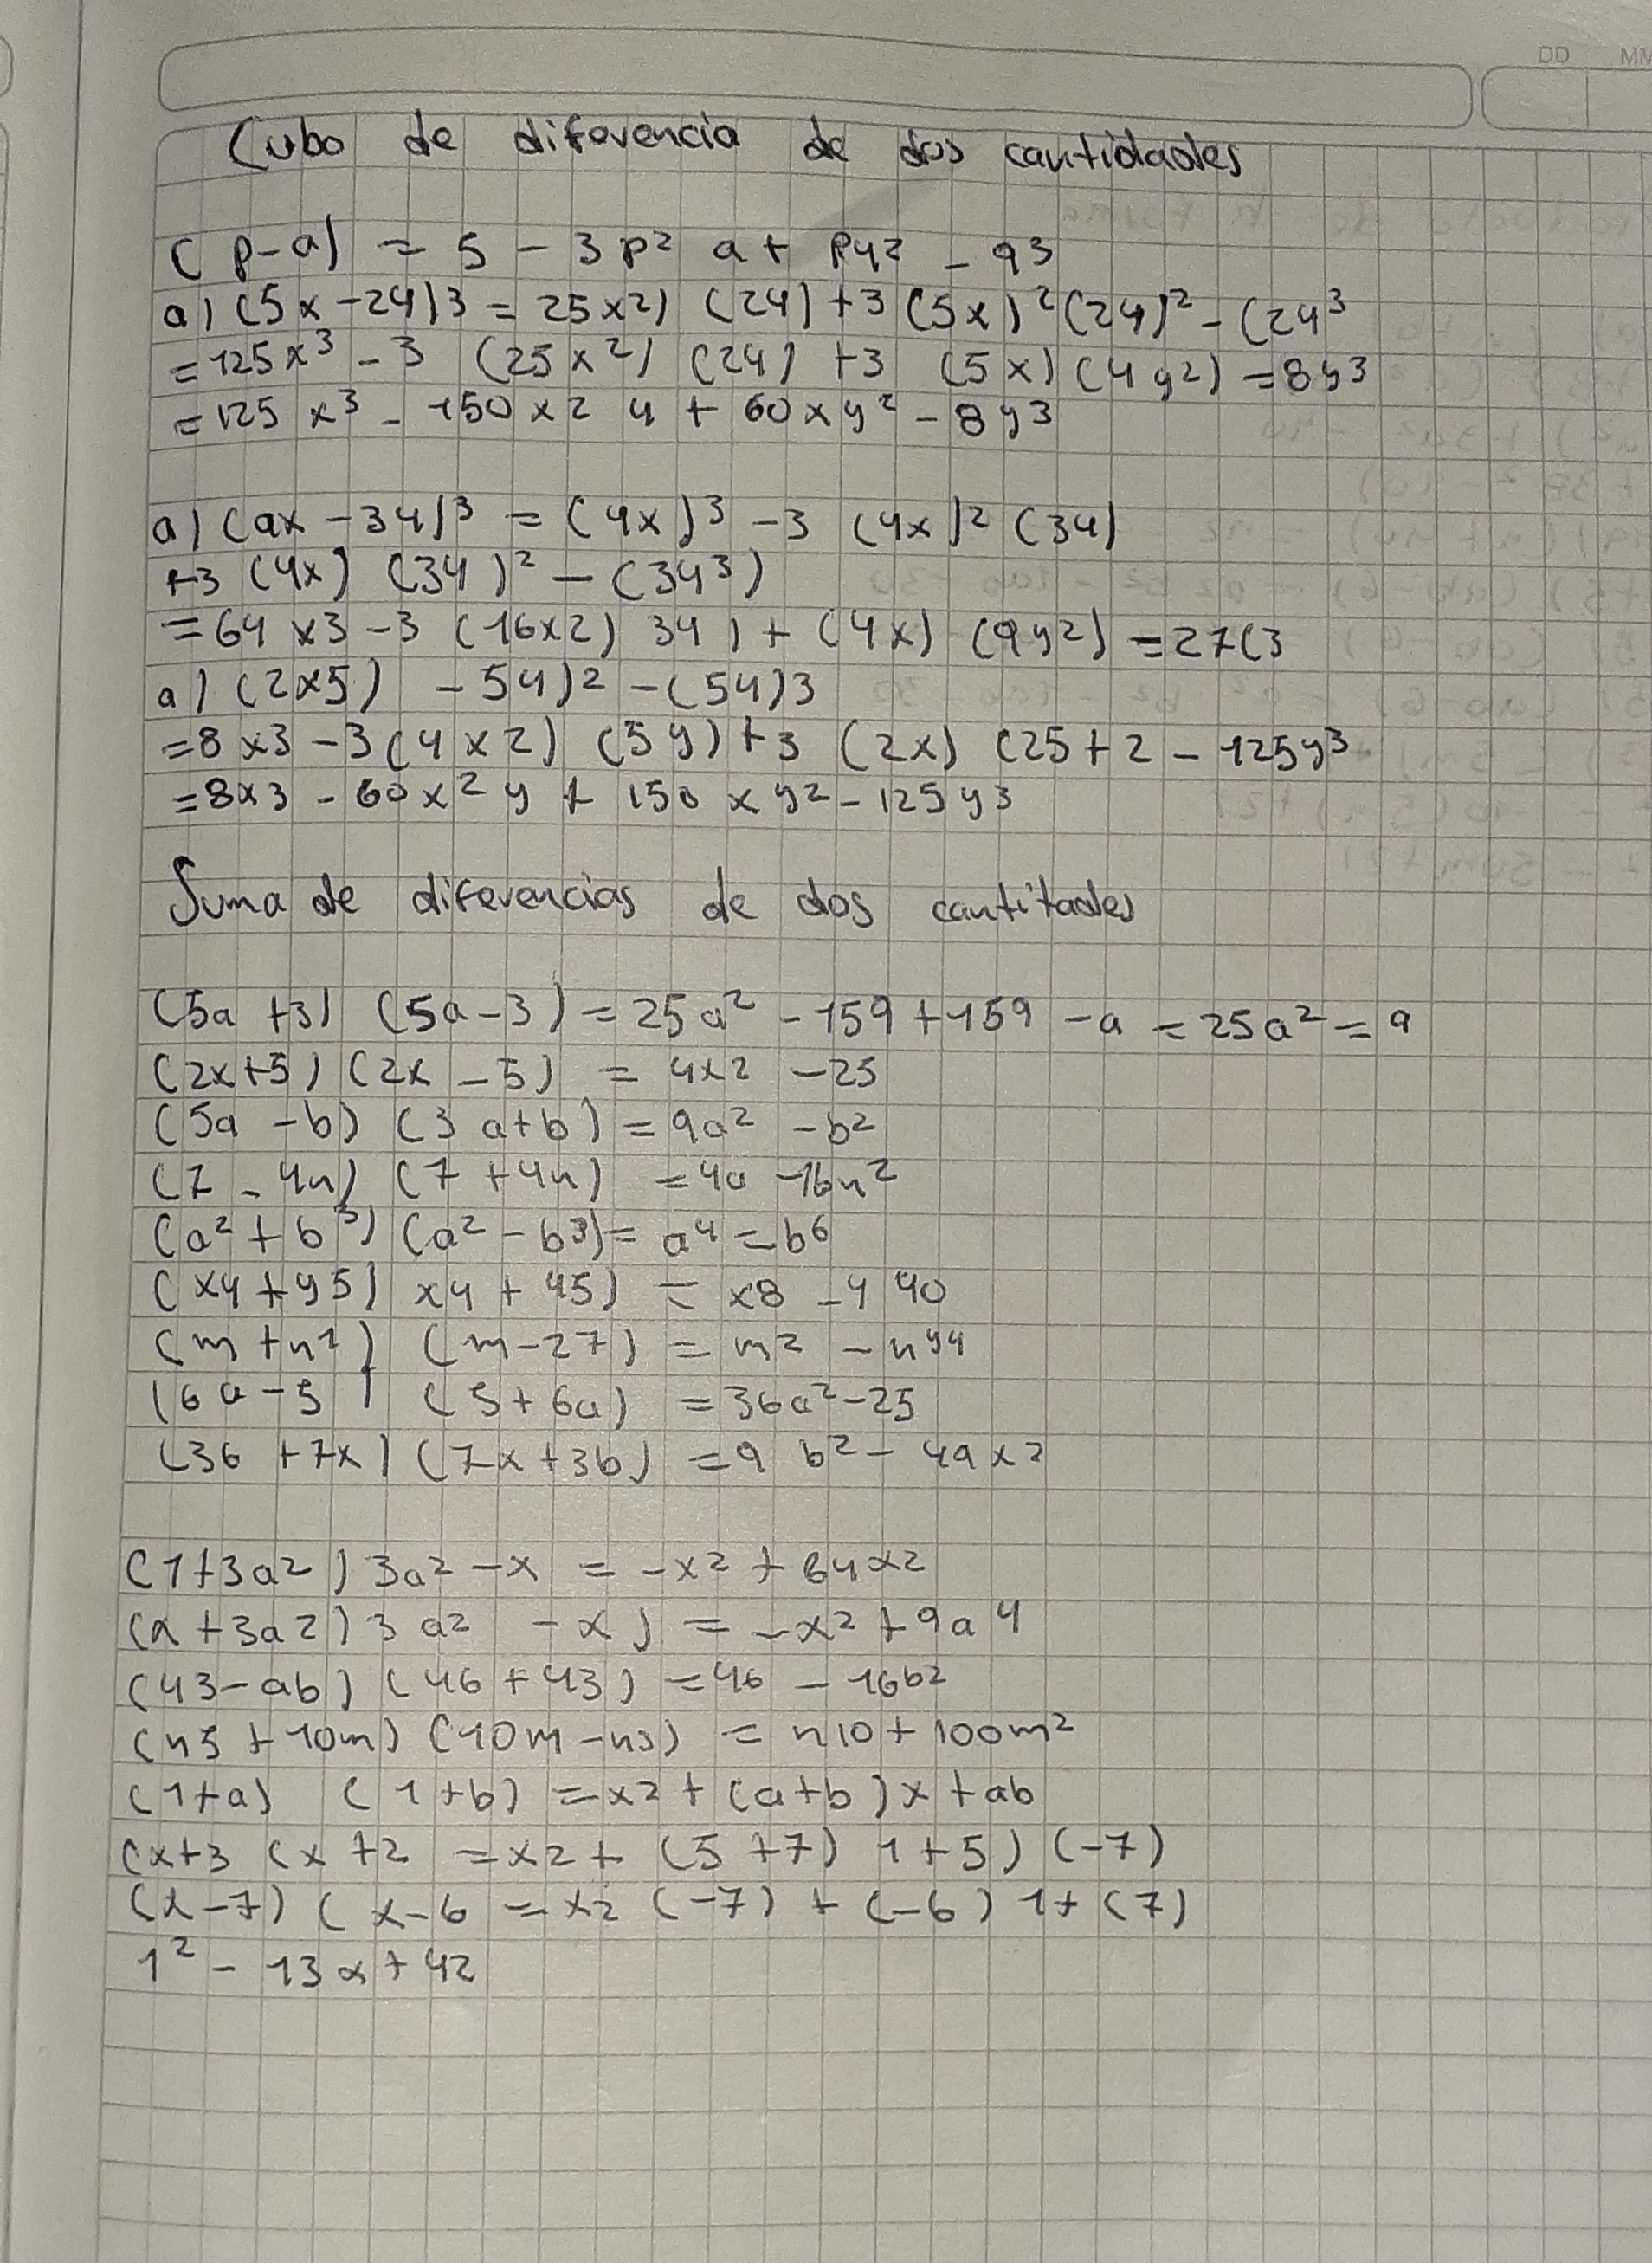 DD MM
Cubo de diferencia de dos cantidades
(p-a) = 5 - 3p² a + py² - q3
a) (5x - 24)3 = 25x2) (24) + 3 (5x)² (24)² - (24³
= 125x³ - 3 (25x²) (24) + 3 (5x) (4y2) = 8y3
= 125 x³ - 150x2 y + 60xy² - 8y3
a) (ax - 34)³ = (4x)³ - 3 (4x)² (34)
+3 (4x) (34)² - (34³)
= 64 x3 - 3 (16x2) 34) + (4x) (9y2) = 27(3
a) (2x5) - 54)2 - (54)3
= 8x3 - 3(4x2) (5y) + 3 (2x) (25+2 - 125y3
= 8x3 - 60x²y + 150 xy2 - 125y3
Suma de diferencias de dos cantitades
(5a +3) (5a-3) = 25a² - 159 + 159 - a = 25a² = 9
(2x+5) (2x - 5) = 4x2 - 25
(5a - b) (3 a+b) = 9a² - b²
(7 - 4n) (7 + 4n) = 4a - 16n²
(a² + b³) (a² - b3) = a4 = b6
(x4 + y5) x4 + 45) = x8 - 4 40
(m + n²) (m-27) = m2 - n44
(6a - 5) (5 + 6a) = 36a² - 25
(36 + 7x) (7x + 3b) = 9 b² - 49x2
(1+3a2) 3a² - x = -x2 + 64x2
(x + 3a2) 3 a2 - x) = -x2 + 9a4
(43 - ab) (46 + 43) = 46 - 16b2
(n5 + 10m) (10m - n5) = n10 + 100m²
(1+a) (1+b) = x2 + (a+b)x + ab
(x+3 (x +2 = x2 + (5 +7) 1+5) (-7)
(x-7) (x-6 = x2 (-7) + (-6) 1+ (7)
1² - 13x + 42